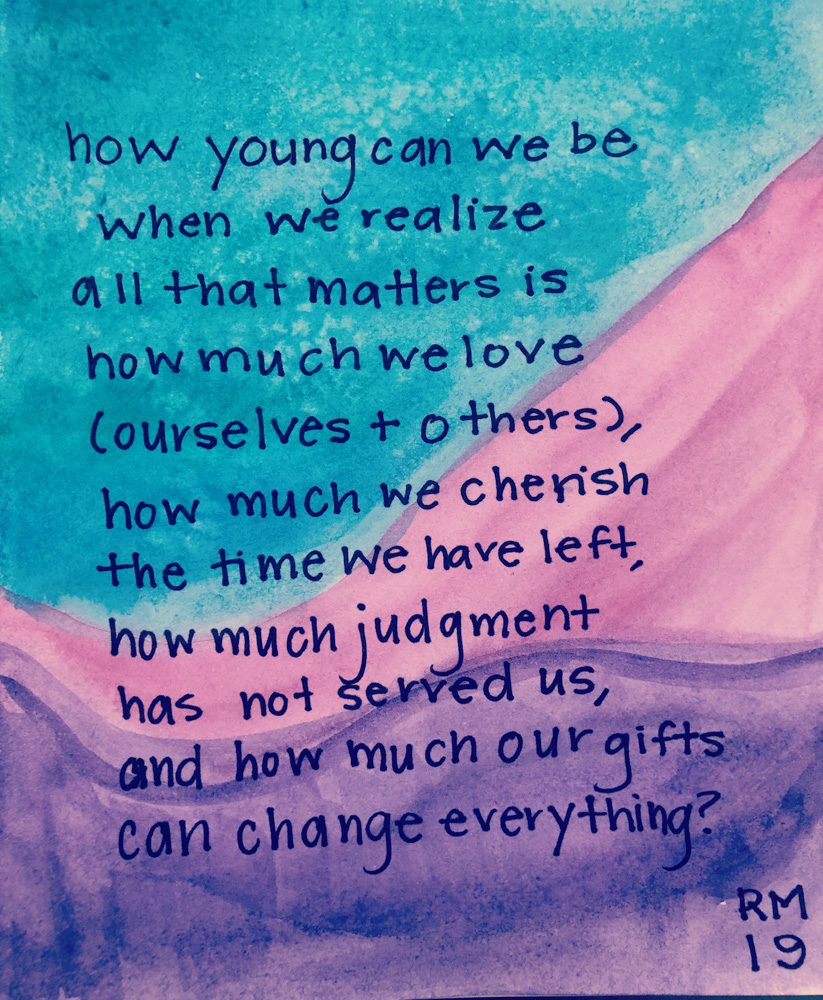 how young can we be
when we realize
all that matters is
how much we love
(ourselves + others),
how much we cherish
the time we have left,
how much judgment
has not served us,
and how much our gifts
can change everything?
RM
19